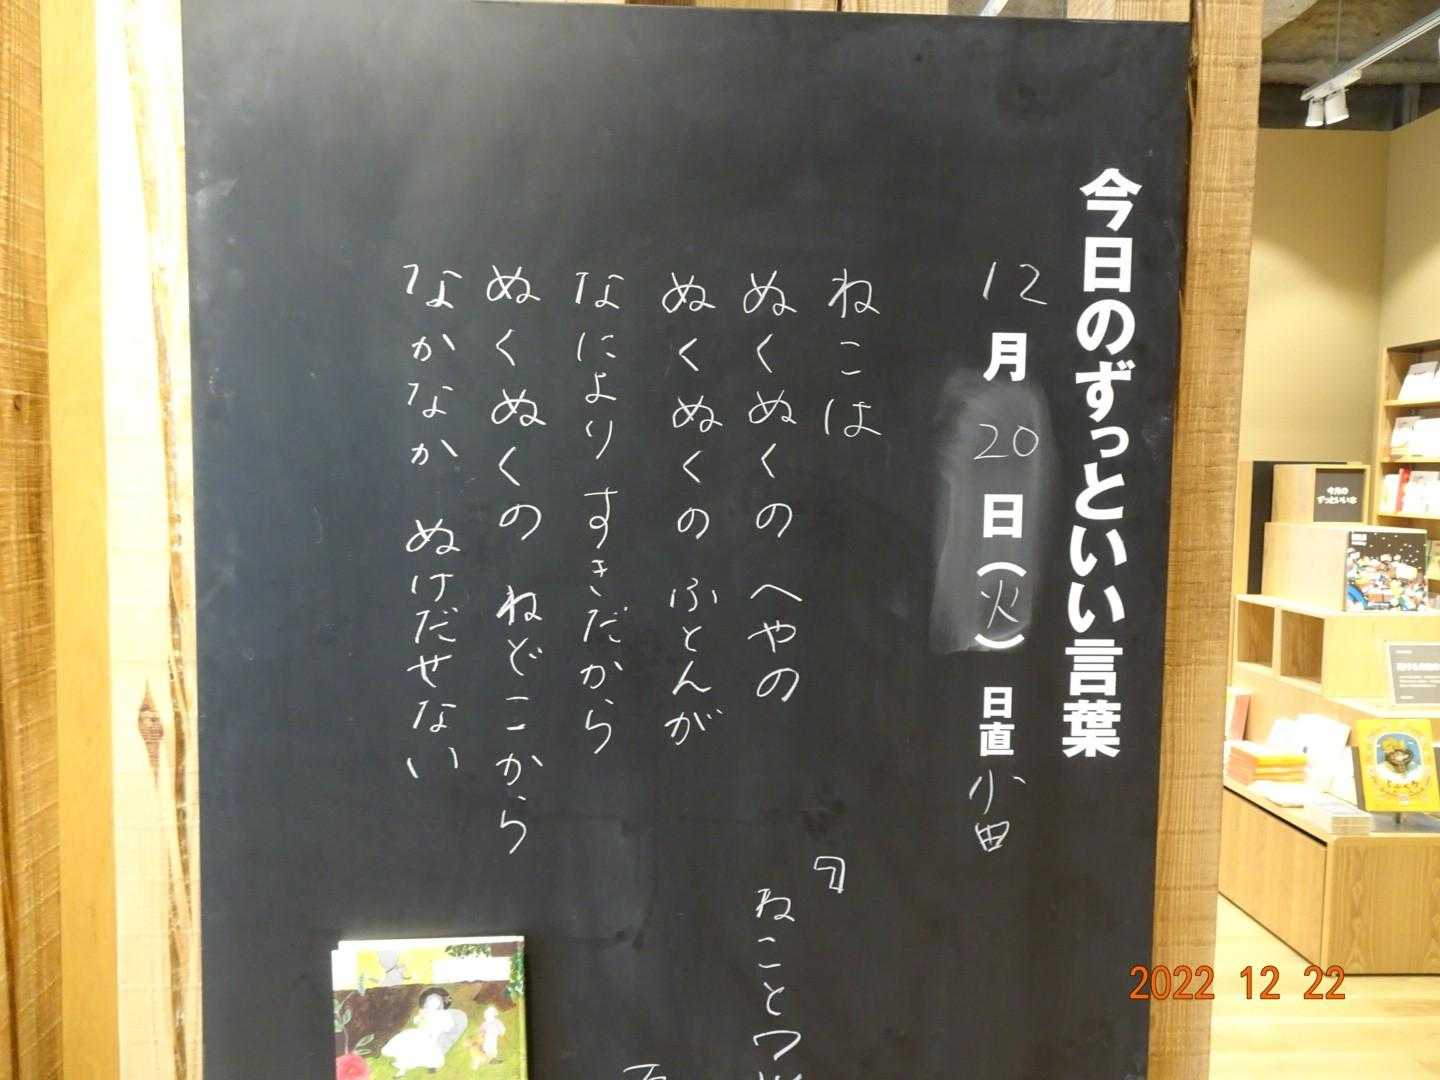 今日のずっといい言葉
12月20日(火) 日直 小田
ねこは
ぬくぬくの へやの
ぬくぬくの ふとんが
なにより すきだから
ぬくぬくの ねどこから
なかなか ぬけだせない
『
ねことワ
今月の
ずっといい本
2022 12 22